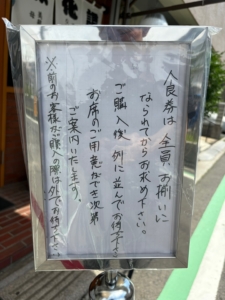 入食券は全員、お揃いに
なられてからお求め下さい。
ご購入後、列に並んでお待ち下さい
お席のご用意ができ次第
ご案内いたします。
※前のお客様がご購入の際は外でお待ち下さい